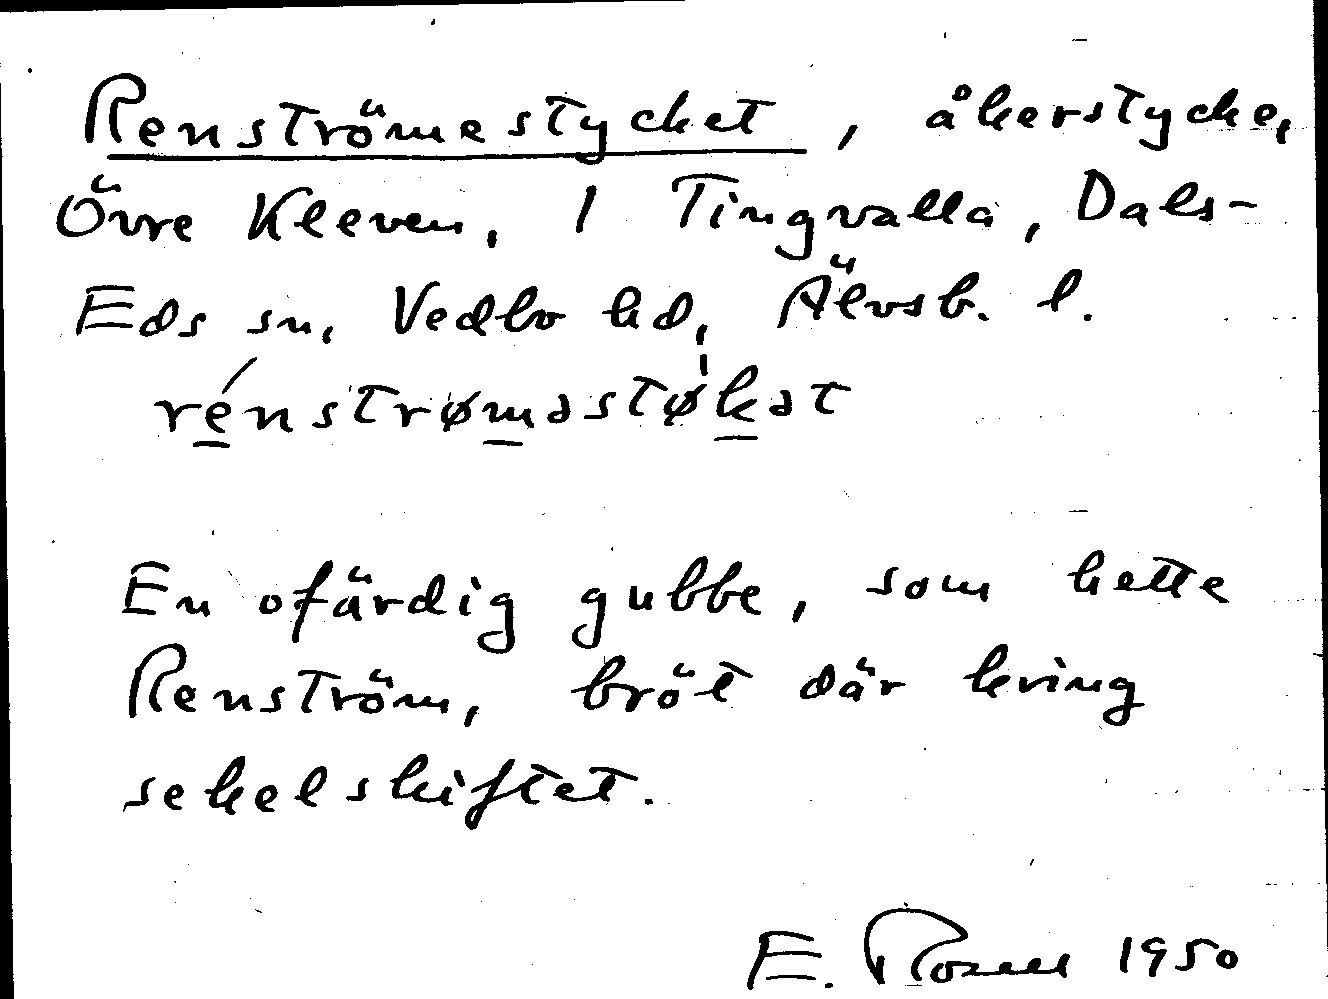 Renströmestycket, åkerstycke,
Övre Kleven, 1 Tingvalla, Dals-
Eds sn, Vedbo hd, Älvsb. l.
rénstrøməstø̍kət
En ofärdig gubbe, som hette
Renström, bröt där kring
sekelskiftet.
E. Rosell 1950